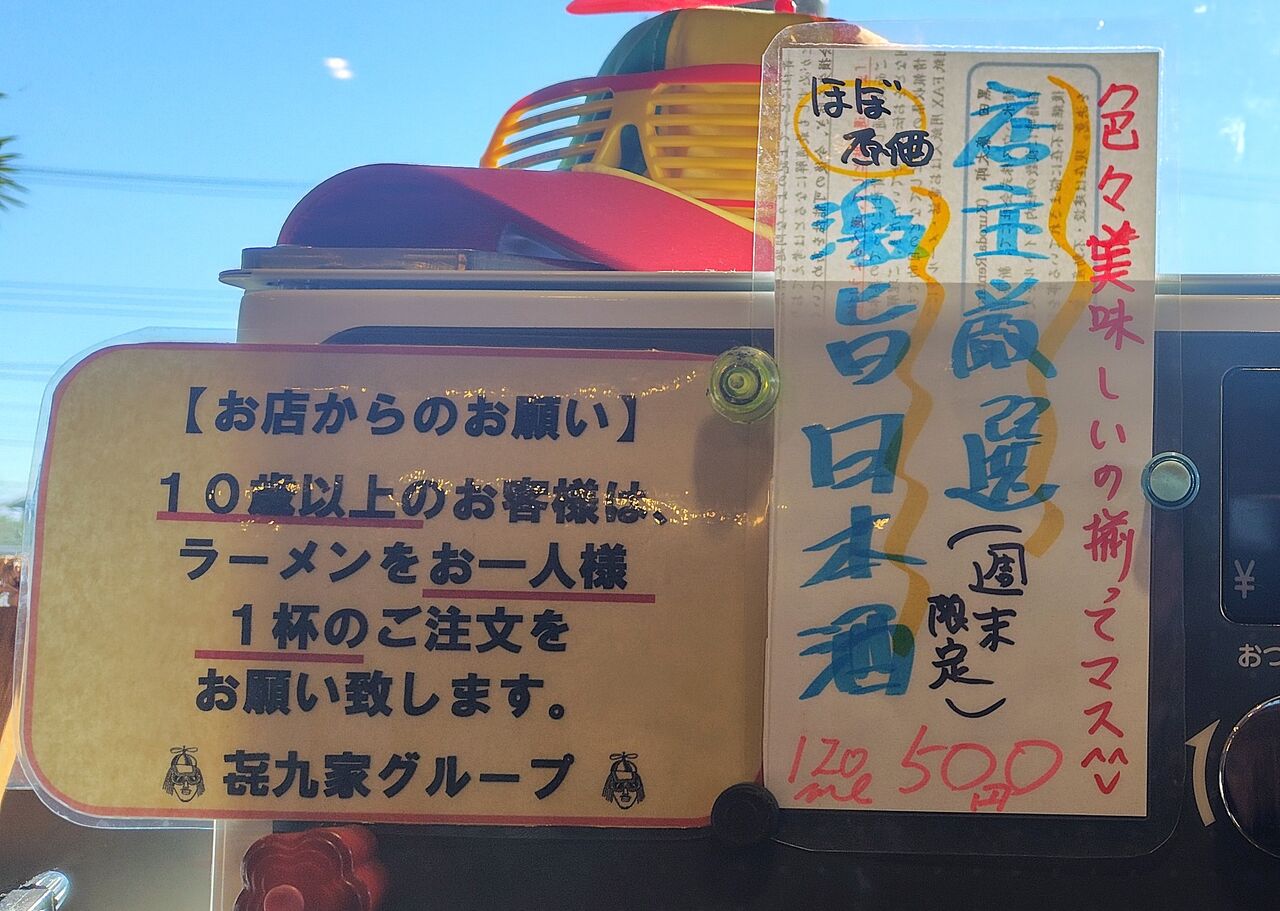 【お店からのお願い】
１０歳以上のお客様は、
ラーメンをお一人様
１杯のご注文を
お願い致します。
㐂九家グループ
色々美味しいの揃ってマス^^
店主厳選(週末限定)
ほぼ
原価
激旨日本酒
120ml 500円
¥
おつ